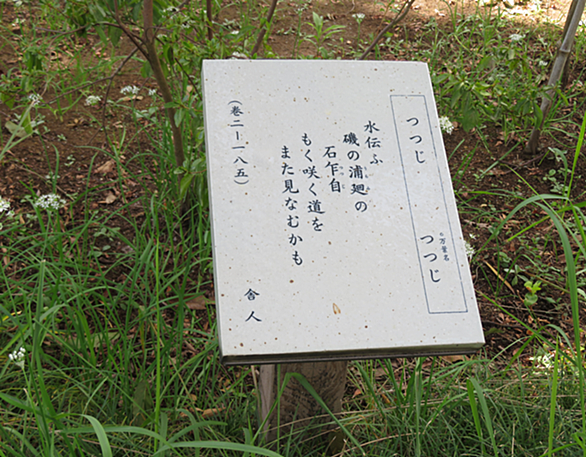 つつじ
万葉名 つつじ
水伝ふ
磯の浦廻の
石乍自
もく咲く道を
また見なむかも
舎人
(巻二-一八五)